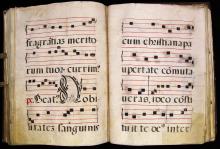 fragratias merito
rum tuor. currim?
ps. Beat Nobi
litates sanguinis
cum christiana pa
upertate cōmuta
ueras, ideo cōsti
tuit te de⁹ inter